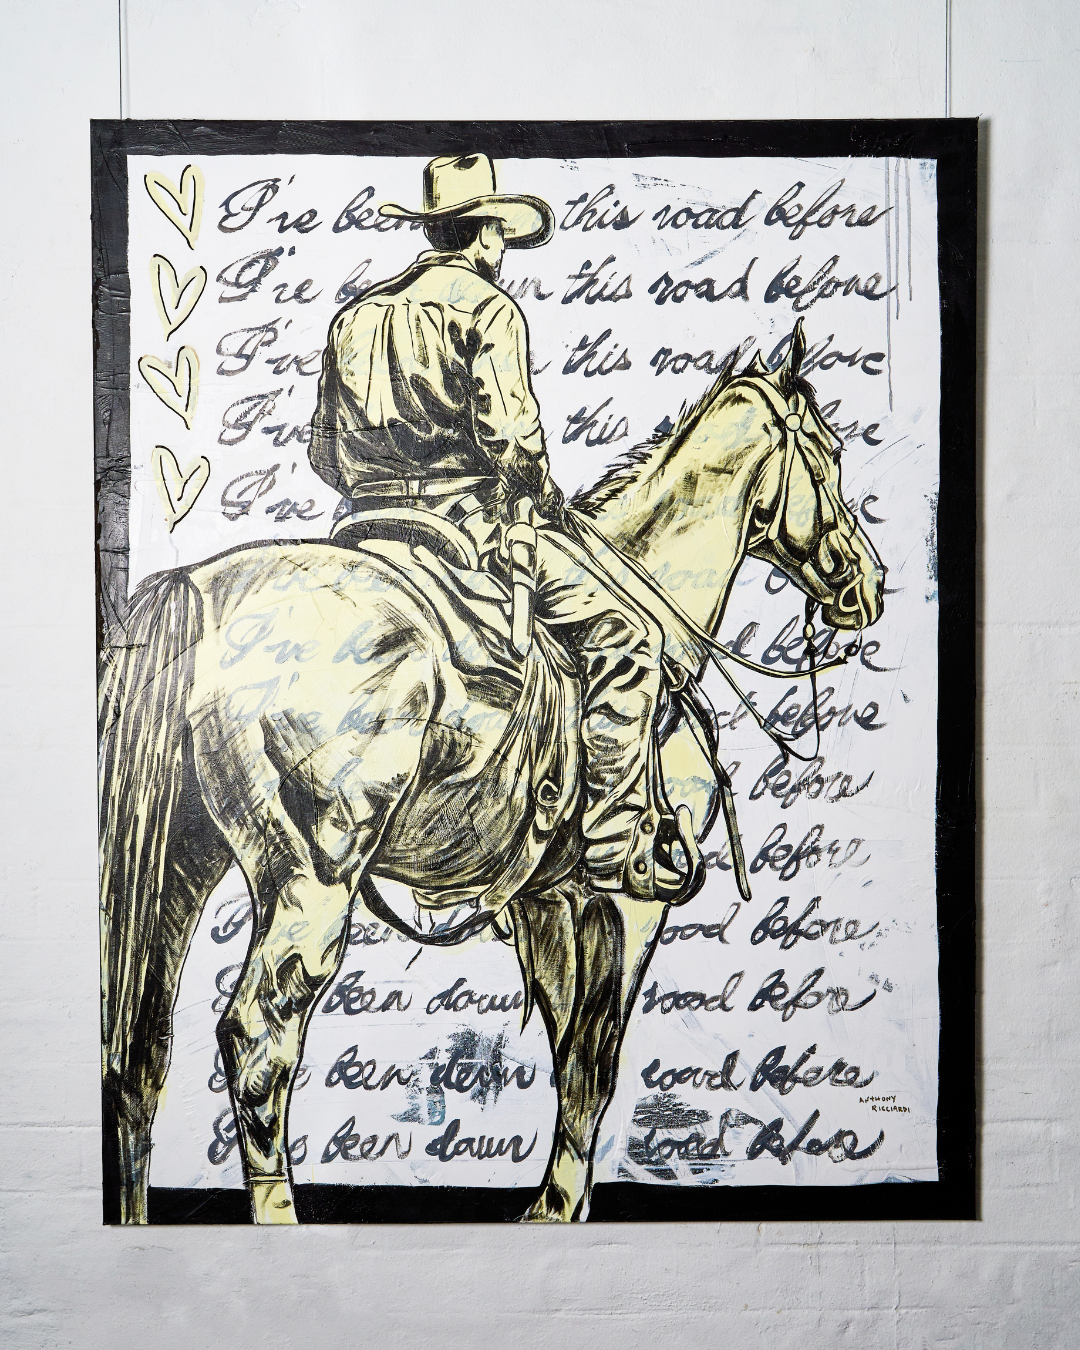 I've been this road before
I've be wn this road before
I've this road before
I've this fore
I've
I've been this road be
I've be d before
I've been down d before
be road before
road before
I've been do road before
been down road before
been down road before
been down road before
ANTHONY
RICCIARDI